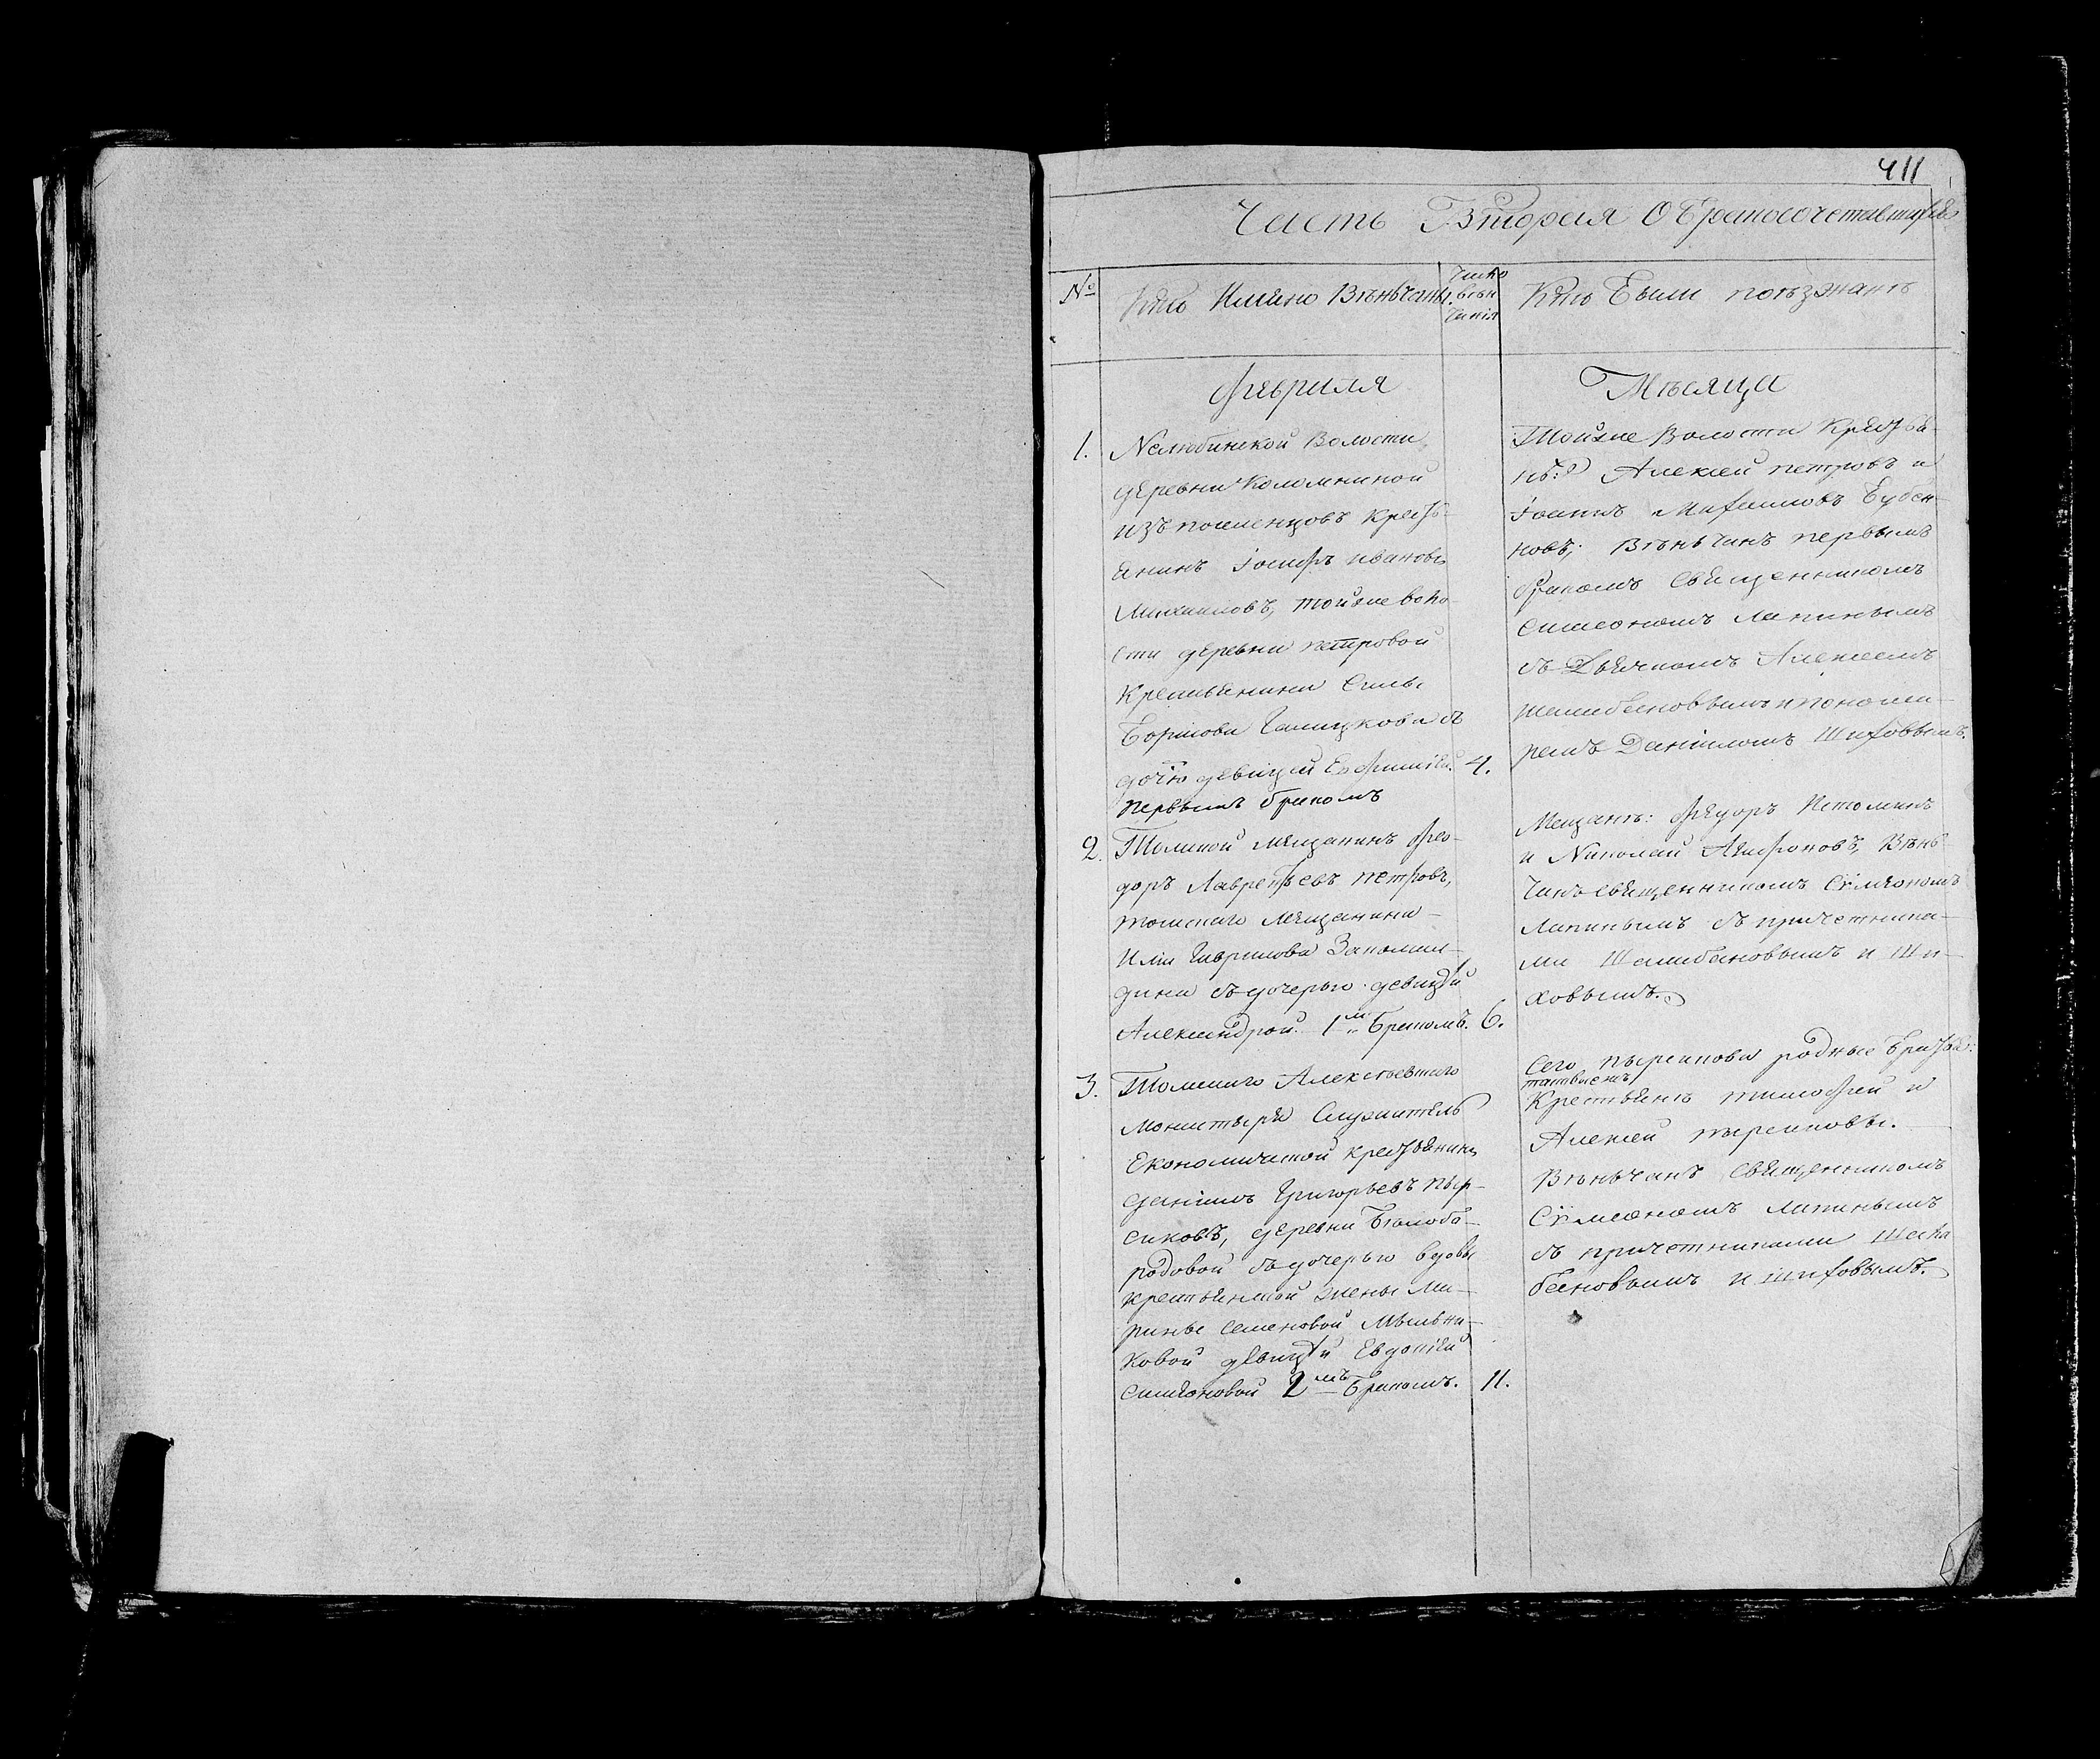 411
Часть Вторая О бракосочетавшихся
№
Кто Имѣно Вѣньчаны.
Число вѣн чанія
Кто Были поѣзжанѣ
Февраля
Мѣсяца
1.
Нелюбинской Волости
деревни Коломниной
изъ поселенцовъ кресть-
янинъ іосифъ ивановъ
Михаиловъ, тойже воло-
сти деревни петровой
Крестьянина Силы
Борисова Галицкова съ
дочью девицей Евфиміей.
первымъ бракомъ
4.
Тойже Волости Крестья-
нѣ: Алексей петровъ и
іоаннъ Михаиловъ Бубен-
новъ; Вѣньчанъ первымъ
бракомъ Священникомъ
Симеономъ Лапинымъ
съ Дьячкомъ Алексеемъ
шалабановымъ и понома-
ремъ Даніиломъ Шиховымъ.
2.
Томской мещанинъ Фео-
доръ Лаврентьевъ петровъ,
томскаго мещанина
Ильи Гаврилова
съ дочерью девицей
Александрой 1м Бракомъ.
6.
Мещанѣ: Федоръ Истоминъ
и Николай Агафоновъ, Вѣнь
чанъ священникомъ Сѵмеономъ
Лапинымъ съ причетника-
ми Шалабановымъ и Ши-
ховымъ.
3.
Томскаго Алексѣевскаго
Монастыря Служитель
Економической крестьянинъ
Даніилъ Григорьевъ пыр-
сиковъ, деревни Бѣлобо-
родовой съ дочерью вдовы
крестьянской жены Ма-
рины Семеновой Мыльни-
ковой девицей Евдокіей
Симеоновой 2мъ Бракомъ.
11.
Сего пырсикова родные братья:
Крестьянѣ тимофей и
Алексей пырсиковы.
Вѣньчанъ Священникомъ
Сѵмеономъ Лапинымъ
съ причетниками Шала
бановымъ и шиховымъ.